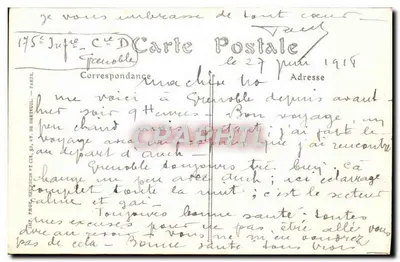 je vous embrasse de tout cœur
Paul
175e Infie - Cie D
Grenoble
Carte Postale
le 27 juin 1918
Correspondance
Adresse
me voici à Grenoble depuis avant
hier soir 9 heures. Bon voyage, un
peu chaud j'ai fait le
voyage que j'ai rencontré
au départ d'Auch
Grenoble toujours très bien. Ca
change un peu avec Auch ; ici éclairage
complet toute la nuit ; c'est le secteur
calme et gai.
Toujours bonne santé ; toutes
mes excuses pour ne pas être allé vous
dire au revoir vous ne m'en voudrez
pas de cela - Bonne santé tous trois
CHARTRES